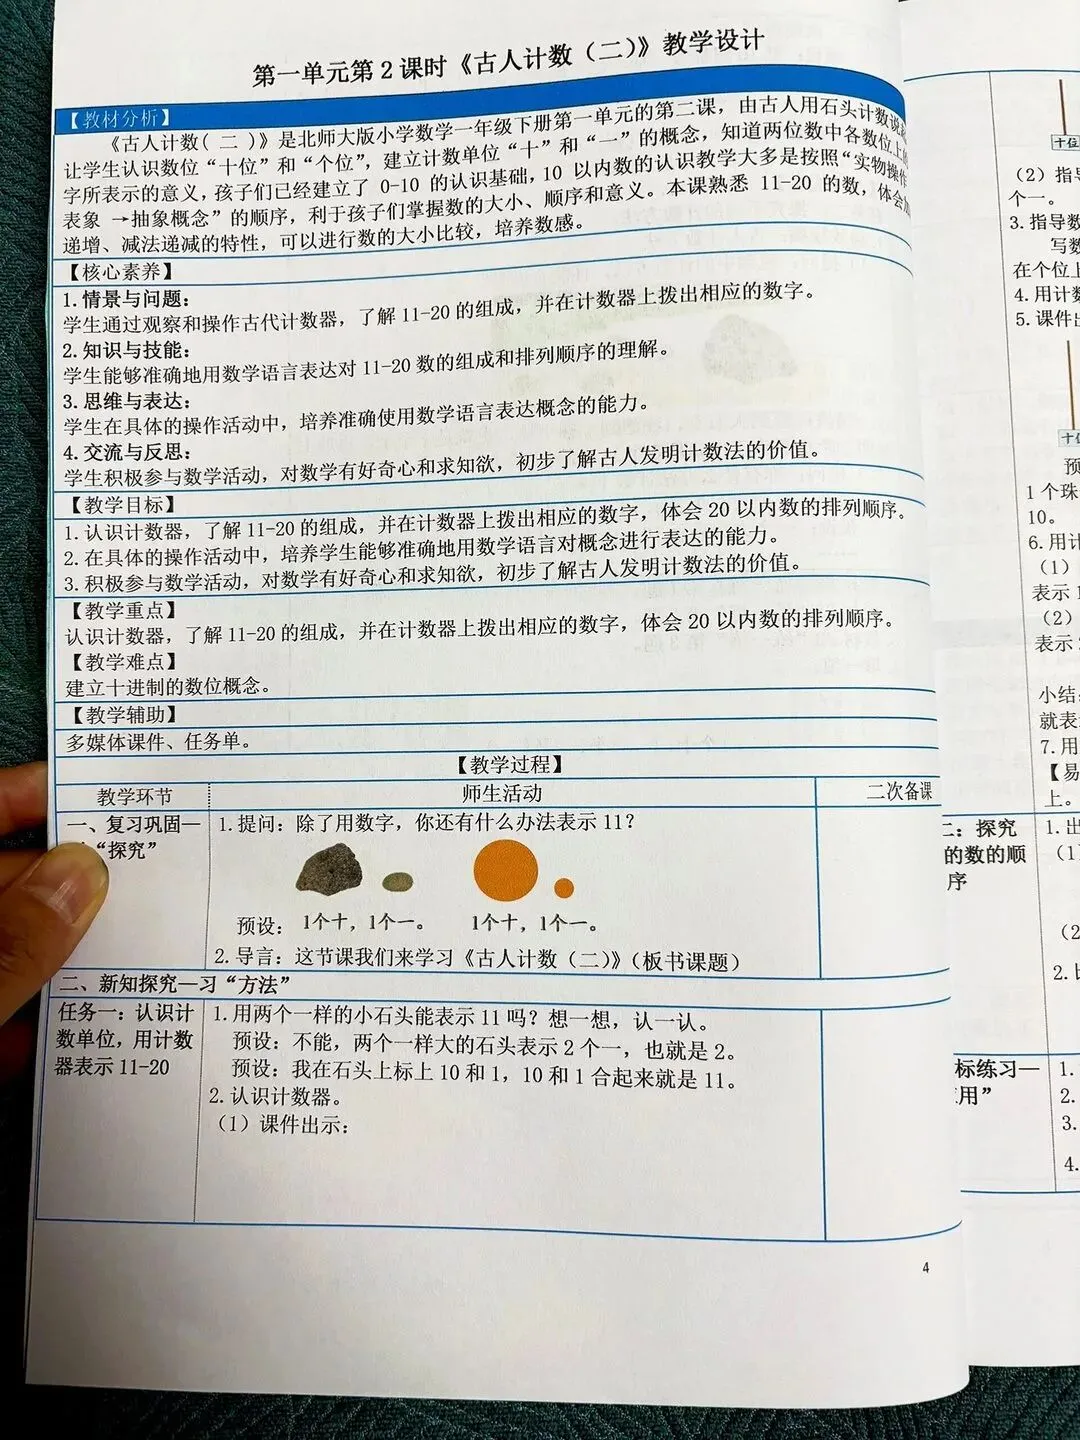 第一单元第2课时《古人计数（二）》教学设计
【教材分析】
《古人计数(二)》是北师大版小学数学一年级下册第一单元的第二课，由古人用石头计数说
让学生认识数位“十位”和“个位”，建立计数单位“十”和“一”的概念，知道两位数中各数位上
字所表示的意义，孩子们已经建立了 0-10 的认识基础，10 以内数的认识教学大多是按照“实物操作
表象 →抽象概念”的顺序，利于孩子们掌握数的大小、顺序和意义。本课熟悉 11-20 的数，体会
递增、减法递减的特性，可以进行数的大小比较，培养数感。
【核心素养】
1.情景与问题：
学生通过观察和操作古代计数器，了解11-20的组成，并在计数器上拨出相应的数字。
2.知识与技能：
学生能够准确地用数学语言表达对11-20数的组成和排列顺序的理解。
3.思维与表达：
学生在具体的操作活动中，培养准确使用数学语言表达概念的能力。
4.交流与反思：
学生积极参与数学活动，对数学有好奇心和求知欲，初步了解古人发明计数法的价值。
【教学目标】
1.认识计数器，了解11-20的组成，并在计数器上拨出相应的数字，体会20以内数的排列顺序。
2.在具体的操作活动中，培养学生能够准确地用数学语言对概念进行表达的能力。
3.积极参与数学活动，对数学有好奇心和求知欲，初步了解古人发明计数法的价值。
【教学重点】
认识计数器，了解11-20的组成，并在计数器上拨出相应的数字，体会20以内数的排列顺序。
【教学难点】
建立十进制的数位概念。
【教学辅助】
多媒体课件、任务单。
【教学过程】
教学环节 师生活动 二次备课
一、复习巩固—
“探究”
1.提问：除了用数字，你还有什么办法表示11？
预设： 1个十，1个一。 1个十，1个一。
2.导言：这节课我们来学习《古人计数（二）》（板书课题）
二、新知探究—习“方法”
任务一：认识计
数单位，用计数
器表示11-20
1.用两个一样的小石头能表示11吗？想一想，认一认。
预设：不能，两个一样大的石头表示2个一，也就是2。
预设：我在石头上标上10和1，10和1合起来就是11。
2.认识计数器。
（1）课件出示：
4
十位
（2）指
个一。
3.指导数
写数
在个位上
4.用计数
5.课件出
十位
预
1个珠
10。
6.用计
（1）
表示1
（2）
表示
小结：
就表
7.用
【易
上。
二：探究
的数的顺
序
1.出
（1
（2
2.比
标练习—
用”
1.
2.
3.
4.